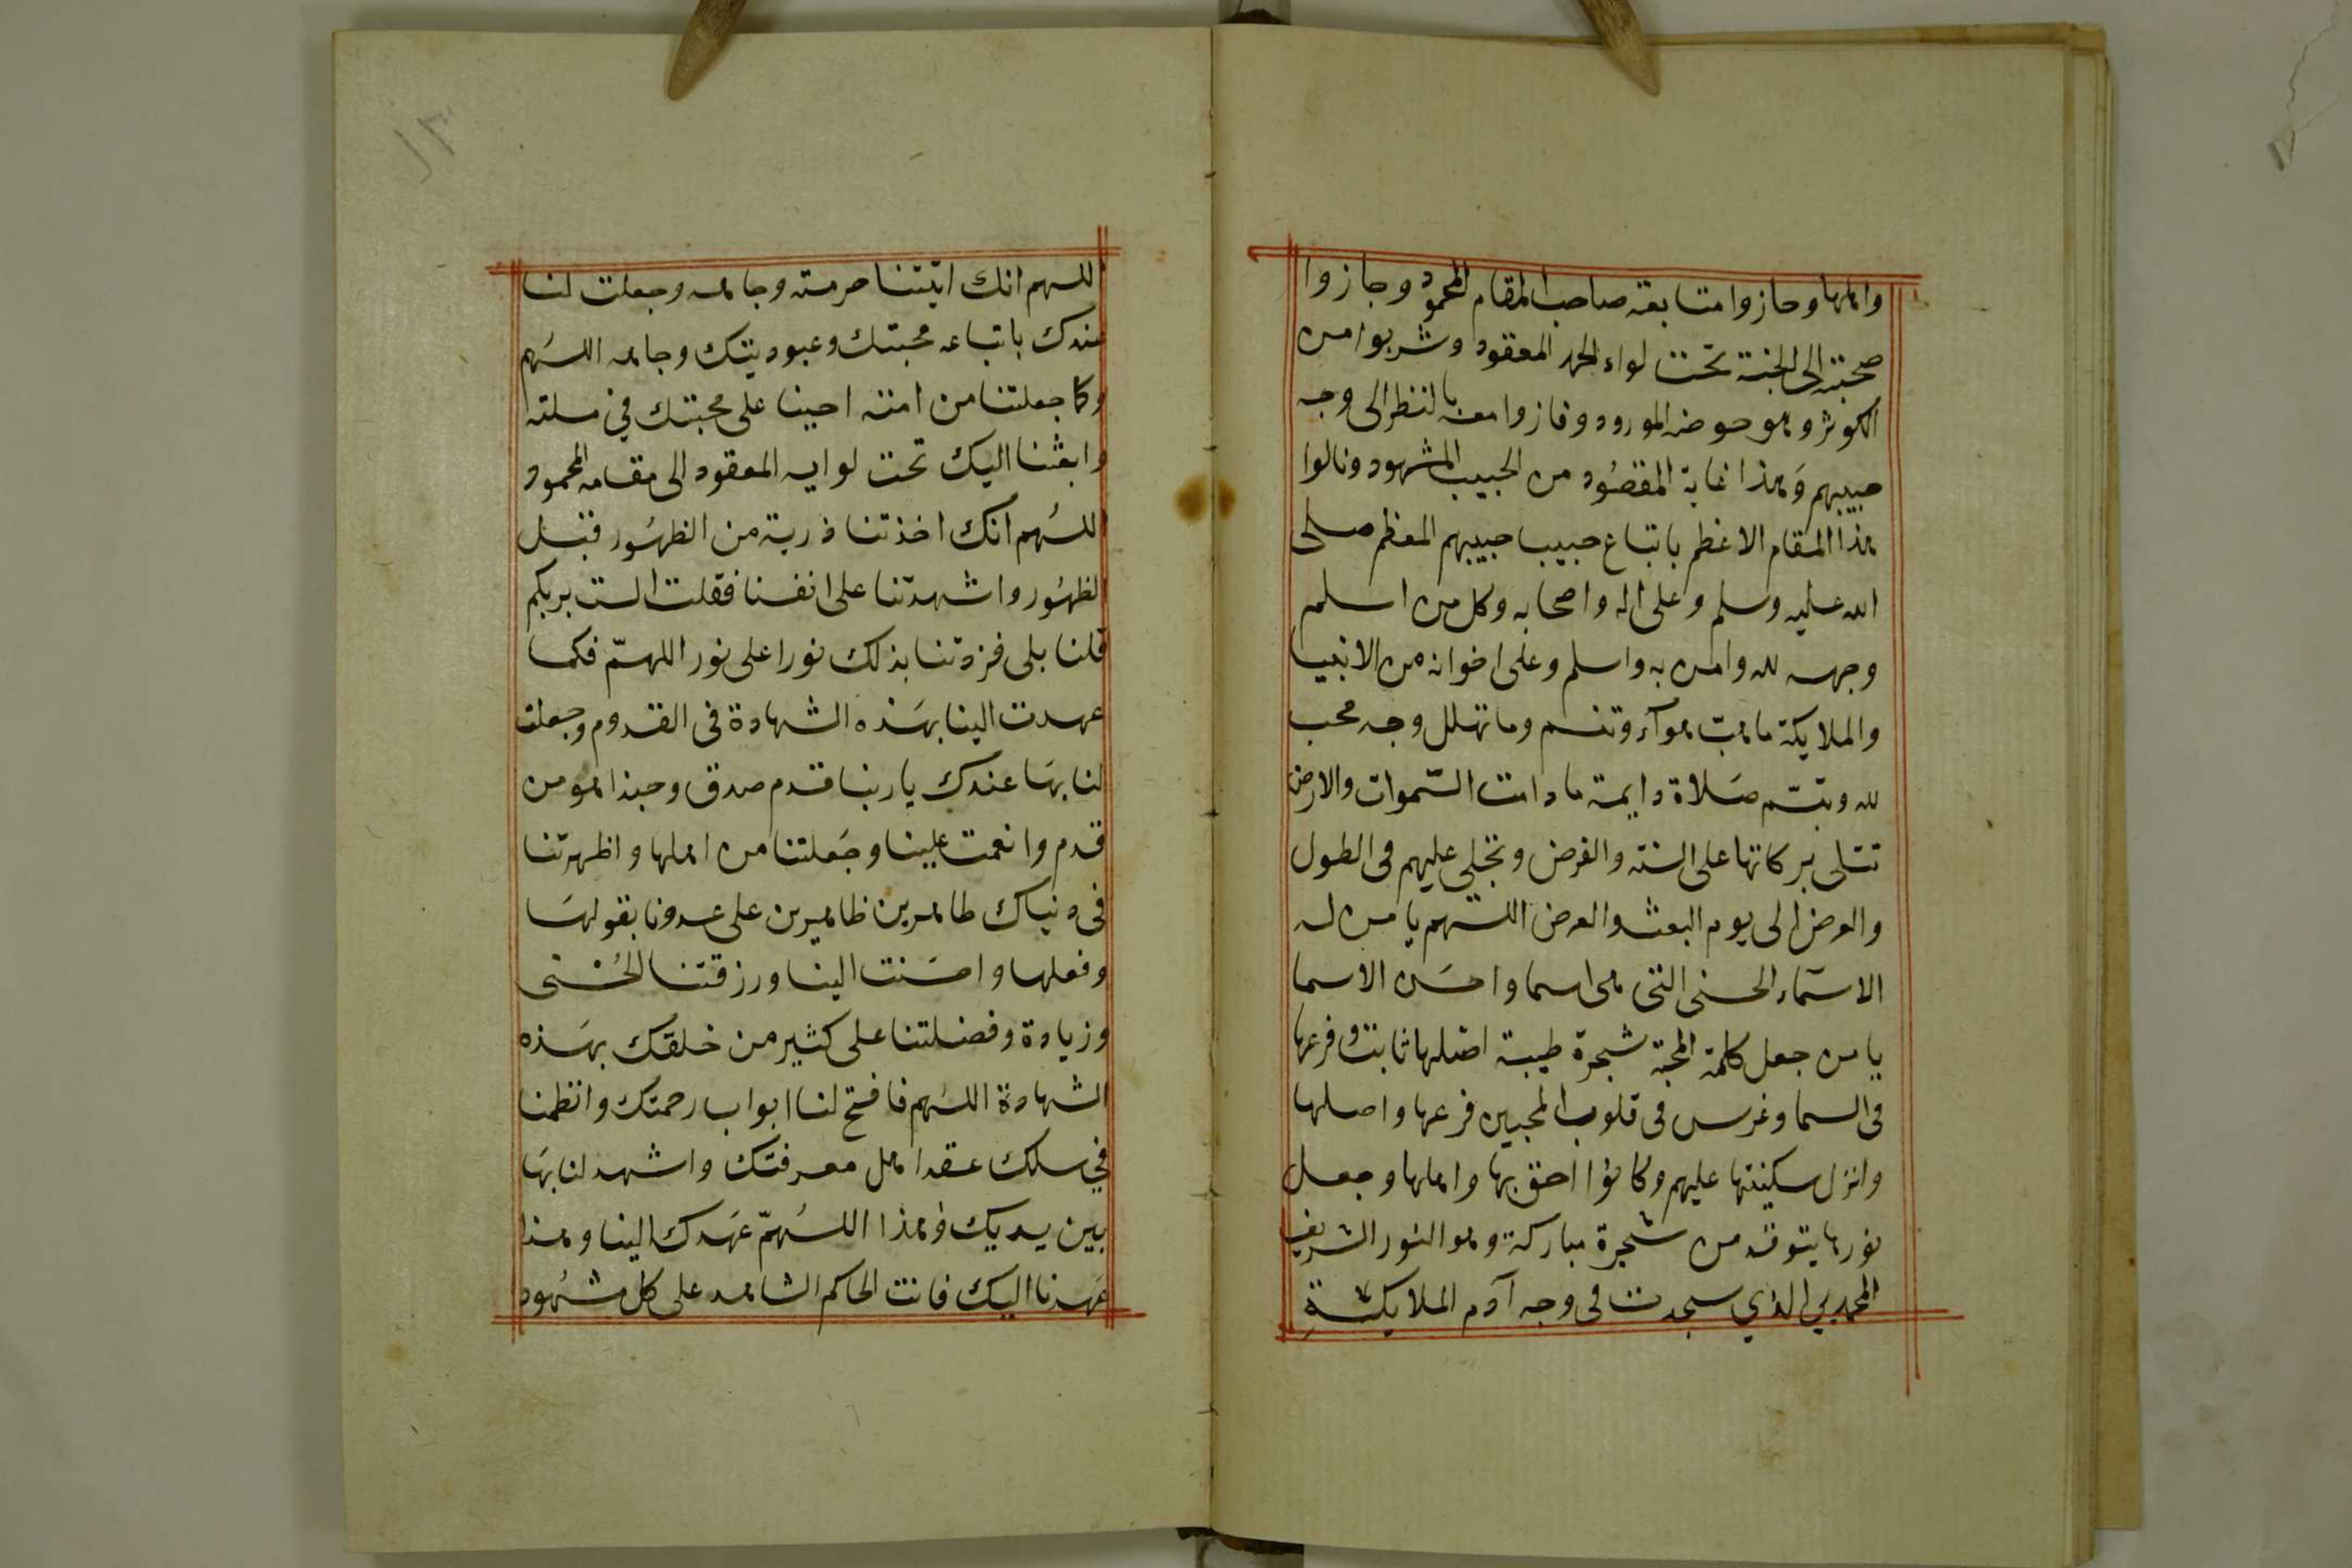 واهلها وحازوا متابعة صاحب المقام المحمود وجازوا
صحبته الى الجنة تحت لواء الحمد المعقود وشربوا من
الكوثر وهو حوضه المورود وفازوا معه بالنظر الى وجه
حبيبهم وَهذا غاية المقصُود من الحبيب المشهود ونالوا
هذا المقام الاعظم باتباع حبيب حبيبهم المعظم صلى
الله عليه وسلم وعلى اله واصحابه وكل من اسلم
وجهه لله وامن به واسلم وعلى اخوانه من الانبيا
والملايكة ما هبّ هوآء وتنسم وما تهلل وجه محب
لله وتبسّم صَلاة دايمة ما دامت السّموات والارض
تتلى بركاتها على السنة والفرض وتجلى عليهم فى الطول
والعرض الى يوم البعث والعرض اللهم يا من له
الاسمَآء الحسنى التى هى اسما واحسَن الاسما
يا من جعل كلمة المحبة شجرة طيبة اصْلها ثابت وفرعها
فى السما وغرس فى قلوب المحبين فرعها واصلها
وانزل سكينتها عليهم وكانوا احق بها واهلها وجعل
نورها يتوقد من شجرة مباركة وهو النور الشريف
المحمدي الذي سجدت فى وجه آدم الملايكة
اللهم انك اتيتنا حرمته وجاهه وجعلت لنا
عندك باتباعه محبتك وعبوديتك وجاهه اللهُم
وكما جعلتنا من امته احينا على محبتك في ملته
وابعثنا اليك تحت لوايه المعقود الى مقامه المحمود
اللهُم انك اخذتنا ذرية من الظهُور قبل
الظهُور واشهدتنا على انفسنا فقلت الست بربكم
قلنا بلى فزدتنا بذلك نورا على نور اللهمّ فكما
عهدت الينا بهَذه الشهادة فى القدوم وجعلت
لنا بهَا عندك يا ربنا قدم صدق وحبذا هو من
قدم وانعمت علينا وجَعلتنا من اهلها واظهرتنا
فى دنياك طاهرين ظاهرين على عدونا بقولهَا
وفعلها واحسَنت الينا ورزقتنا الحُسْنى
وزيادة وفضلتنا على كثير من خلقك بهَذه
الشهادة اللهُم فافتح لنا ابواب رحمتك وانظمنا
في سلك عقد اهل معرفتك واشهد لنا بهَا
بين يديك فهذا اللهُمّ عَهدك الينا وهذا
عَهدنا اليك فانت الحاكم الشاهد على كل مشهُود